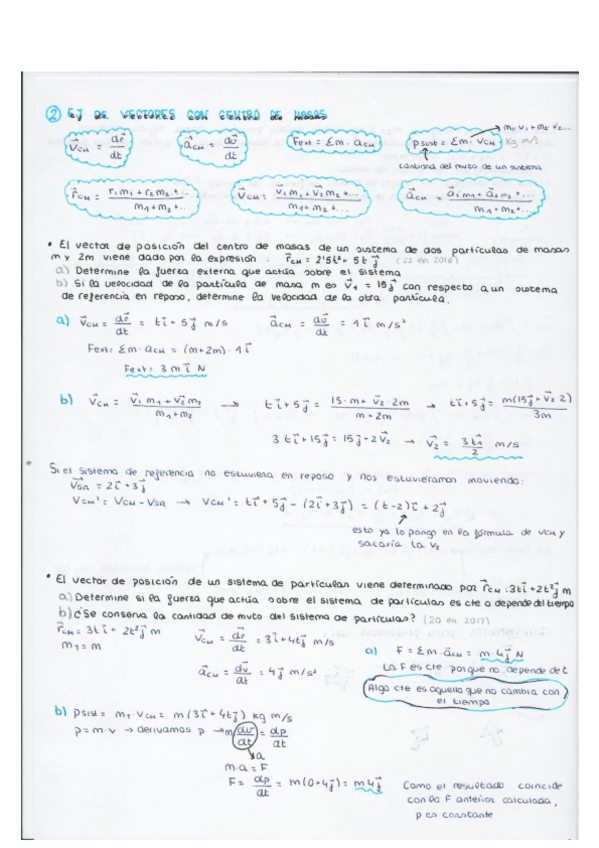 ② EJ DE VECTORES CON CENTRO DE MASAS
v⃗CM = dr⃗/dt
a⃗CM = dv⃗/dt
Fext = Σm · aCM
psist = Σm · vCM kg m/s
m₁ v₁ + m₂ v₂...
cantidad del mvto de un sistema
r⃗CM = (r₁m₁ + r₂m₂ + ..)/(m₁ + m₂ + ...)
v⃗CM = (v⃗₁m₁ + v⃗₂m₂ + ...)/(m₁ + m₂ + ...)
a⃗CM = (a⃗₁m₁ + a⃗₂m₂ + ...)/(m₁ + m₂ + ...)
• El vector de posición del centro de masas de un sistema de dos partículas de masas
m y 2m viene dado por la expresión : r⃗CM = 2'5t² + 5t j⃗ (22 en 2016)
a) Determine la fuerza externa que actúa sobre el sistema
b) Si la velocidad de la partícula de masa m es v⃗₁ = 15j⃗ con respecto a un sistema
de referencia en reposo, determine la velocidad de la otra partícula.
a) v⃗CM = dr⃗/dt = t i⃗ + 5 j⃗ m/s a⃗CM = dv⃗/dt = 1 i⃗ m/s²
Fext: Σm · aCM = (m + 2m) · 1 i⃗
Fext: 3 m i⃗ N
b) v⃗CM = (v⃗₁ m₁ + v⃗₂ m₂)/(m₁ + m₂) → t i⃗ + 5 j⃗ = (15 · m + v⃗₂ · 2m)/(m + 2m) → t i⃗ + 5 j⃗ = m(15j⃗ + v⃗₂ · 2)/3m
3 t i⃗ + 15 j⃗ = 15 j⃗ + 2 v⃗₂ → v⃗₂ = 3t i⃗/2 m/s
Si el sistema de referencia no estuviera en reposo y nos estuvieramos moviendo:
v⃗SR = 2 i⃗ + 3 j⃗
vCM' = vCM - vSR → vCM' = t i⃗ + 5 j⃗ - (2 i⃗ + 3 j⃗) = (t-2) i⃗ + 2 j⃗
esto ya lo pongo en la fórmula de vCM y
sacaría la v₂
• El vector de posición de un sistema de partículas viene determinado por r⃗CM : 3t i⃗ + 2t² j⃗ m
a) Determine si la fuerza que actúa sobre el sistema de partículas es cte o depende del tiempo
b) ¿Se conserva la cantidad de mvto del sistema de partículas? (20 en 2017)
r⃗CM = 3t i⃗ + 2t² j⃗ m
m₁ = m
v⃗CM = dr⃗/dt = 3 i⃗ + 4t j⃗ m/s
a⃗CM = dv⃗/dt = 4 j⃗ m/s²
a) F = Σm · a⃗CM = m · 4 j⃗ N
La F es cte porque no depende de t
Algo cte es aquello que no cambia con
el tiempo
b) psist = mT · vCM = m(3 i⃗ + 4t j⃗) kg m/s
p = m · v → derivamos p → m dv/dt = dp/dt
a
m · a = F
F = dp/dt = m(0 + 4 j⃗) = m 4 j⃗
Como el resultado coincide
con la F anterior calculada,
p es constante